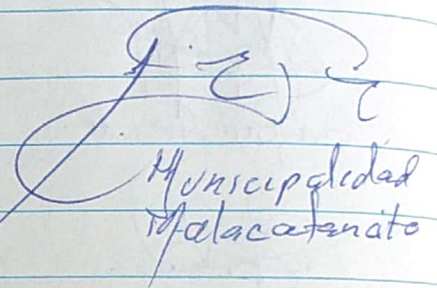 Municipalidad
Malacatancito